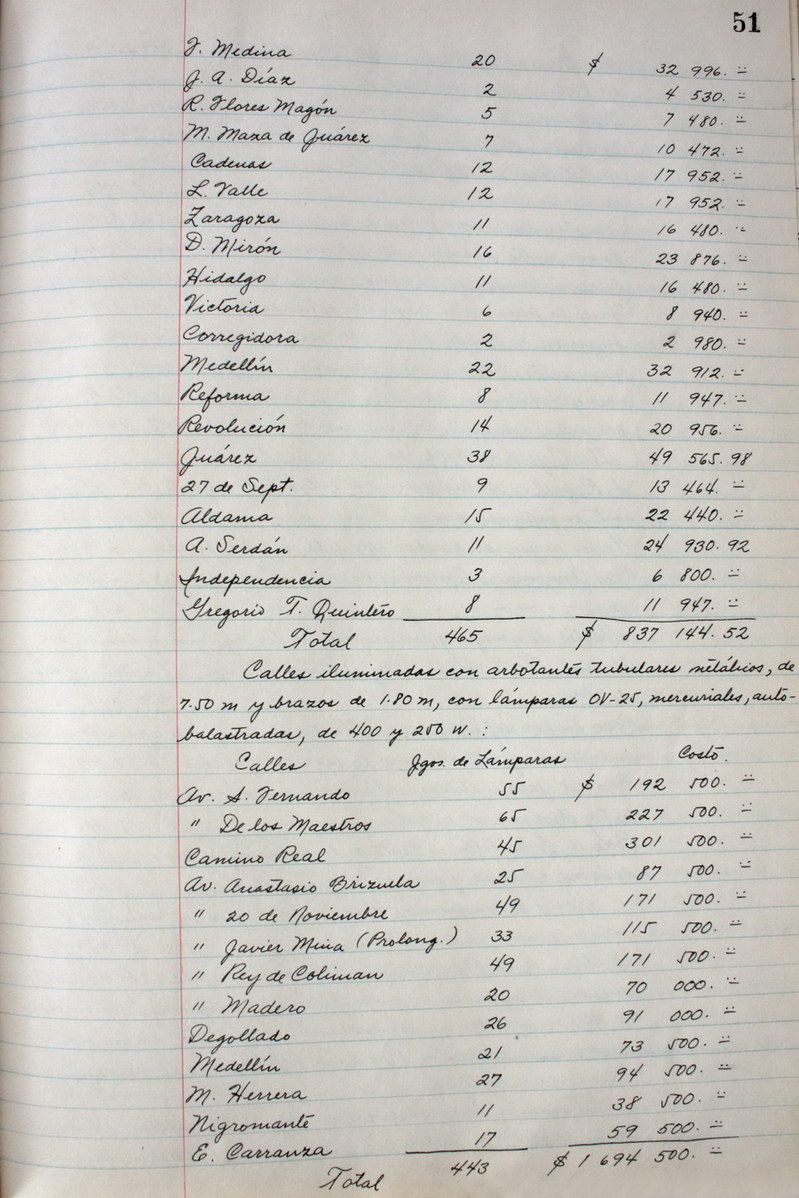 51
J. Medina 20 $ 32 996. =
J. A. Díaz 2 4 530. =
R. Flores Magón 5 7 480. =
M. Maza de Juárez 7 10 472. =
Cadenas 12 17 952. =
L. Valle 12 17 952. =
Zaragoza 11 16 480. =
D. Mirón 16 23 876. =
Hidalgo 11 16 480. =
Victoria 6 8 940. =
Corregidora 2 2 980. =
Medellín 22 32 912. =
Reforma 8 11 947. =
Revolución 14 20 956. =
Juárez 38 49 565. 98
27 de Sept. 9 13 464. =
Aldama 15 22 440. =
A. Serdán 11 24 930. 92
Independencia 3 6 800. =
Gregorio T. Quintero 8 11 947. =
Total 465 $ 837 144. 52
Calles iluminadas con arbotantes tubulares metálicos, de
7.50 m y brazos de 1.80 m, con lámparas OV-25, mercuriales, auto-
balastradas, de 400 y 250 W. :
Calles Jgos. de Lámparas Costo.
Av. S. Fernando 55 $ 192 500. =
" De los Maestros 65 227 500. =
Camino Real 45 301 500. =
Av. Anastasio Brizuela 25 87 500. =
" 20 de Noviembre 49 171 500. =
" Javier Mina (Prolong.) 33 115 500. =
" Rey de Coliman 49 171 500. =
" Madero 20 70 000. =
Degollado 26 91 000. =
Medellín 21 73 500. =
M. Herrera 27 94 500. =
Nigromante 11 38 500. =
E. Carranza 17 59 500. =
Total 443 $ 1 694 500. =